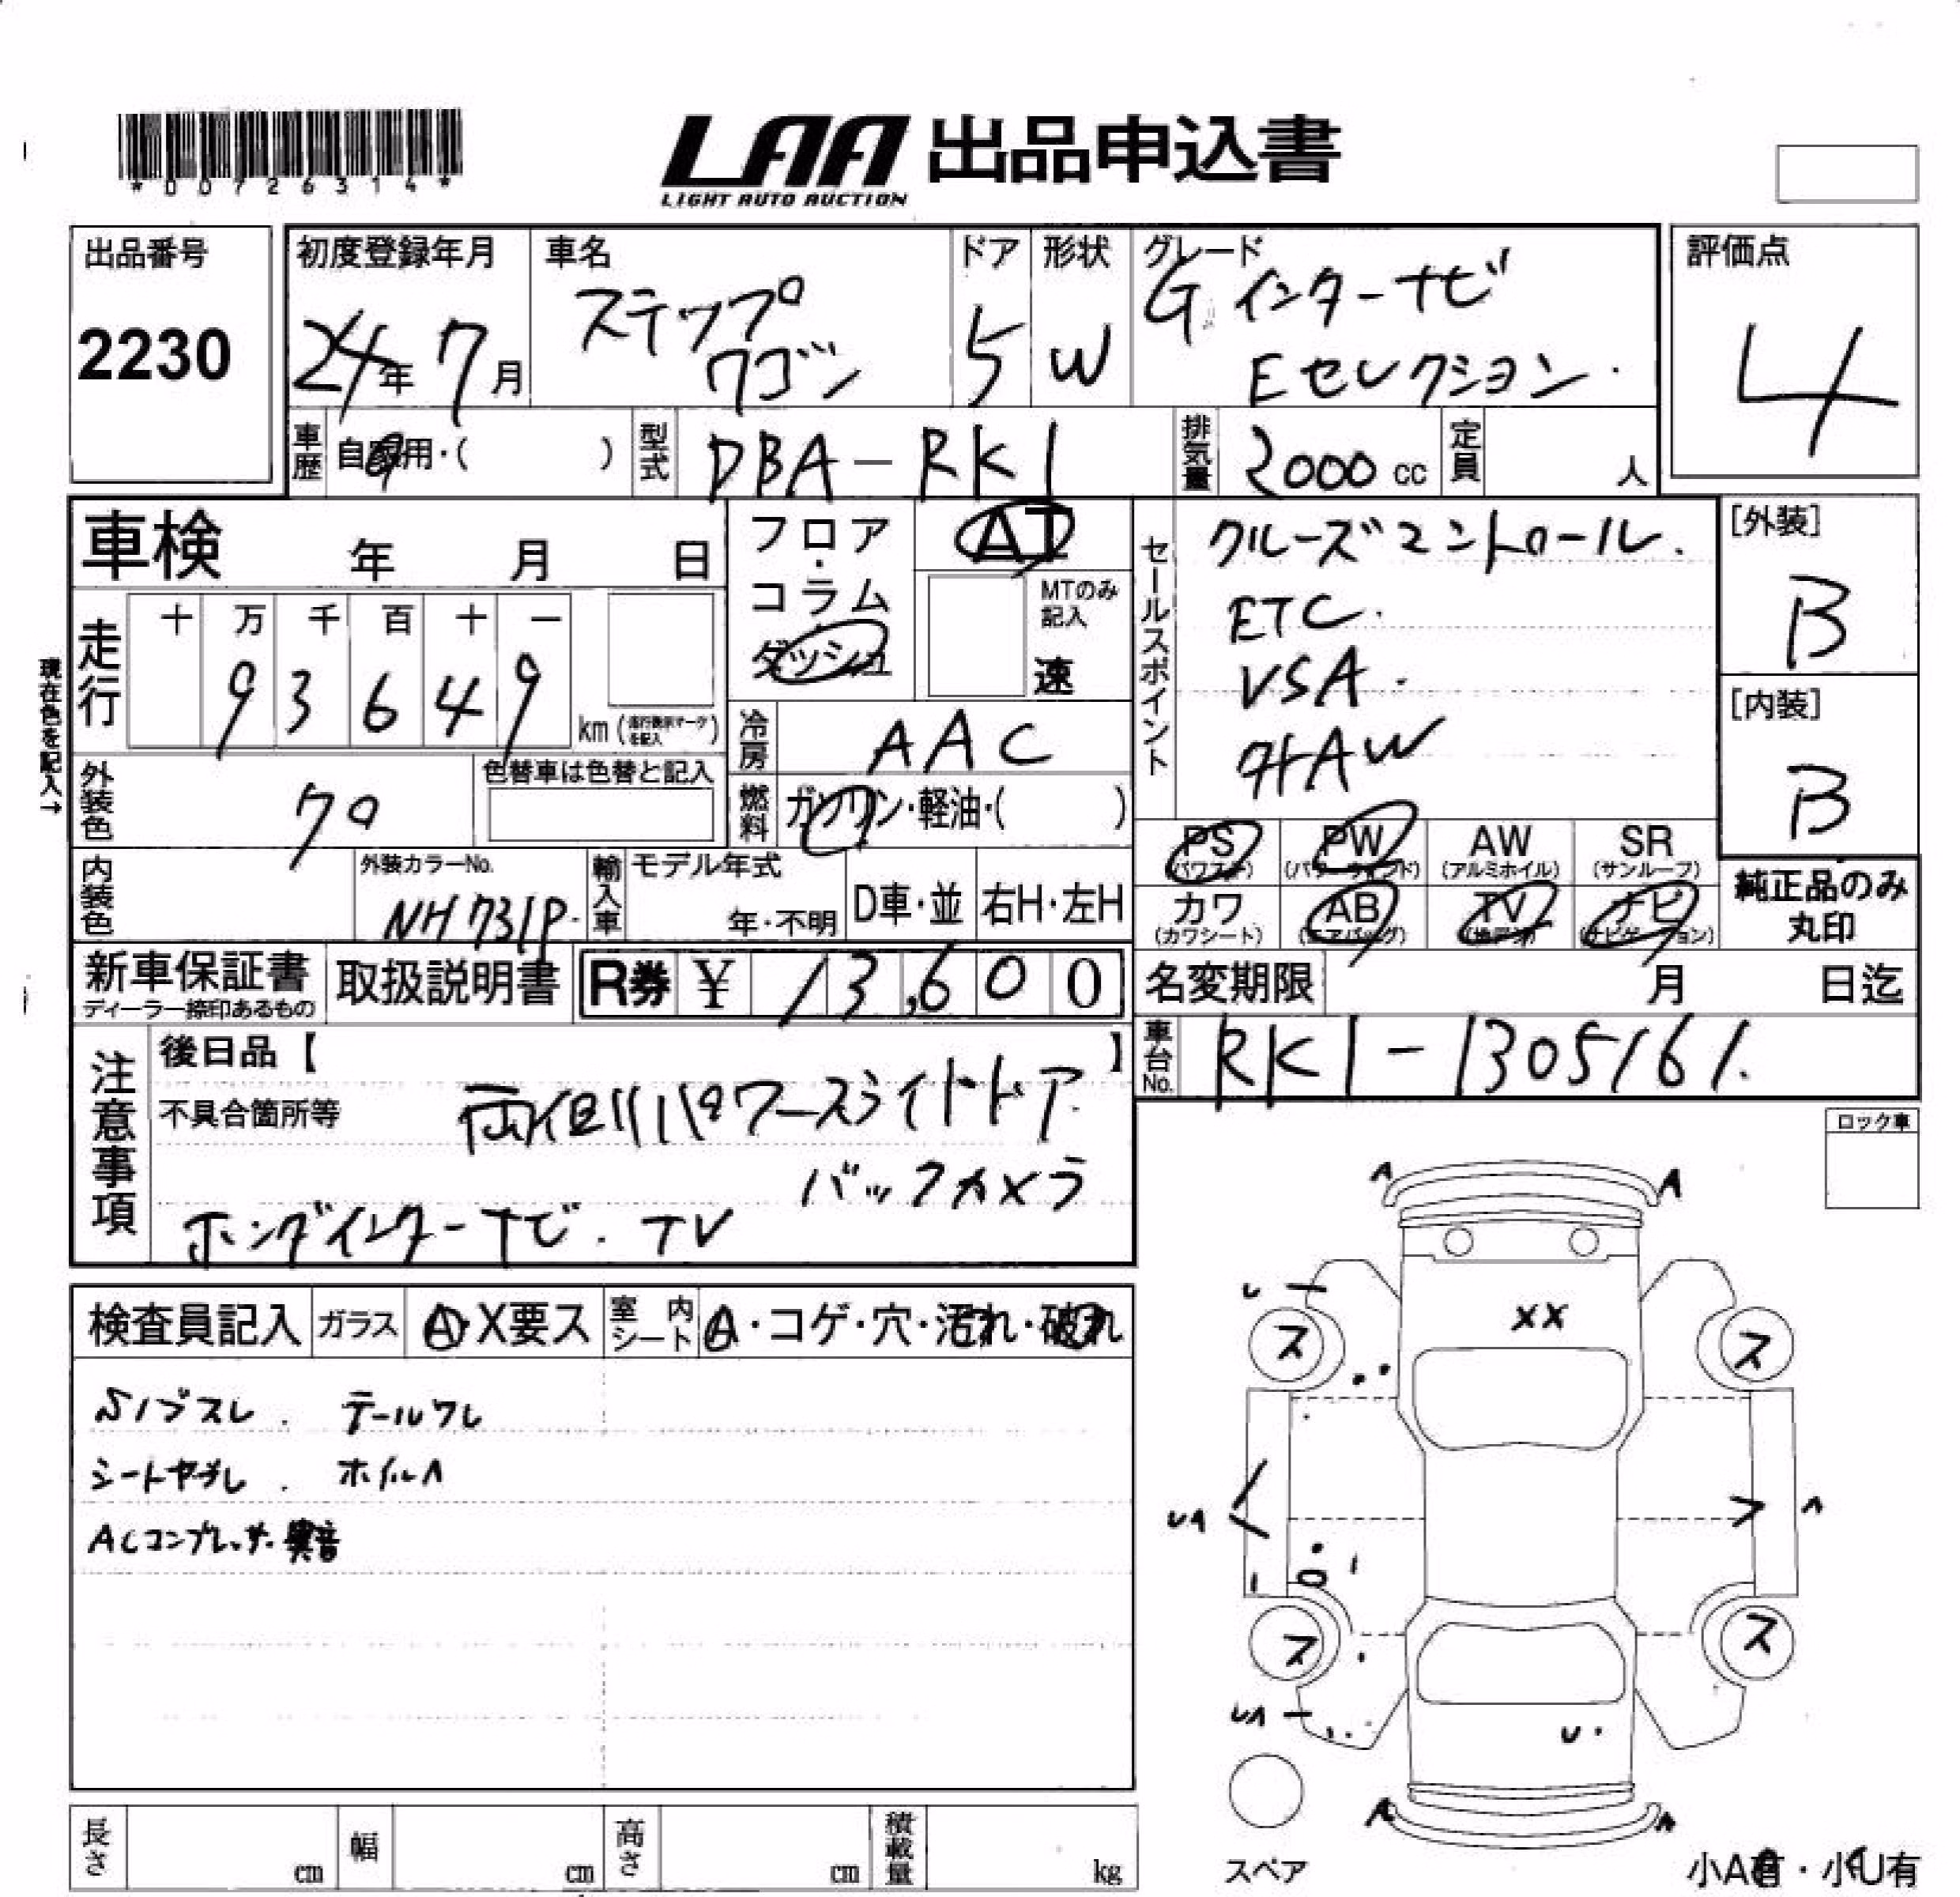 *00726314*
LAA 出品申込書
LIGHT AUTO AUCTION
出品番号
2230
初度登録年月
24年 7月
車名
ステップ
ワゴン
ドア
5
形状
W
グレード
G インターナビ
Eセレクション.
評価点
4
車歴 自家用・( )
型式 DBA-RK1
排気量 2000 cc
定員 人
車検 年 月 日
フロア・コラム
ダッシュ
AT
MTのみ
記入
速
セールスポイント
クルーズコントロール.
ETC.
VSA.
外AW
[外装]
B
[内装]
B
現在色を記入→
走行
十 万 千 百 十 一
9 3 6 4 9
km (走行表示マークを記入)
冷房 AAC
外装色 クロ
色替車は色替と記入
燃料 ガソリン・軽油・( )
PS (パワステ)
PW (パワーウインド)
AW (アルミホイル)
SR (サンルーフ)
内装色
外装カラーNo.
NH731P.
輸入車
モデル年式
年・不明
D車・並
右H・左H
カワ (カワシート)
AB (エアバッグ)
TV (地デジ)
ナビ (ナビゲーション)
純正品のみ
丸印
新車保証書
ディーラー捺印あるもの
取扱説明書
R券 ¥ 13,600
名変期限 月 日迄
車台No. RK1-1305161.
注意事項
後日品【 】
不具合箇所等
両側パワースライドドア
バックカメラ
ホンダインターナビ. TV
ロック車
検査員記入
ガラス A・X要ス
室内シート A・コゲ・穴・汚れ・破れ
テールワレ
シートヤブレ. ホイルA
ACコンプレッサー異音
A A
U
XX
ス ス
UA
A
ス ス
UA
U
A A
スペア
長さ cm
幅 cm
高さ cm
積載量 kg
小A有・小U有